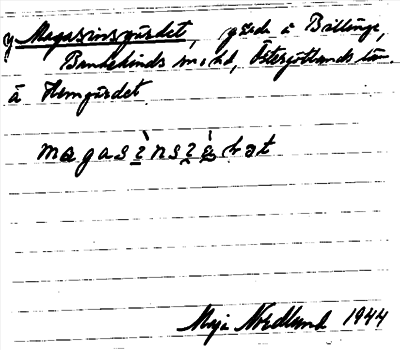 y Magasinsgärdet, gärde å Brälinge,
Bankekinds sn o hd, Östergötlands län.
å Hemgärdet.
magasìnsjæ̀ṣt
Maja Nordlund 1944